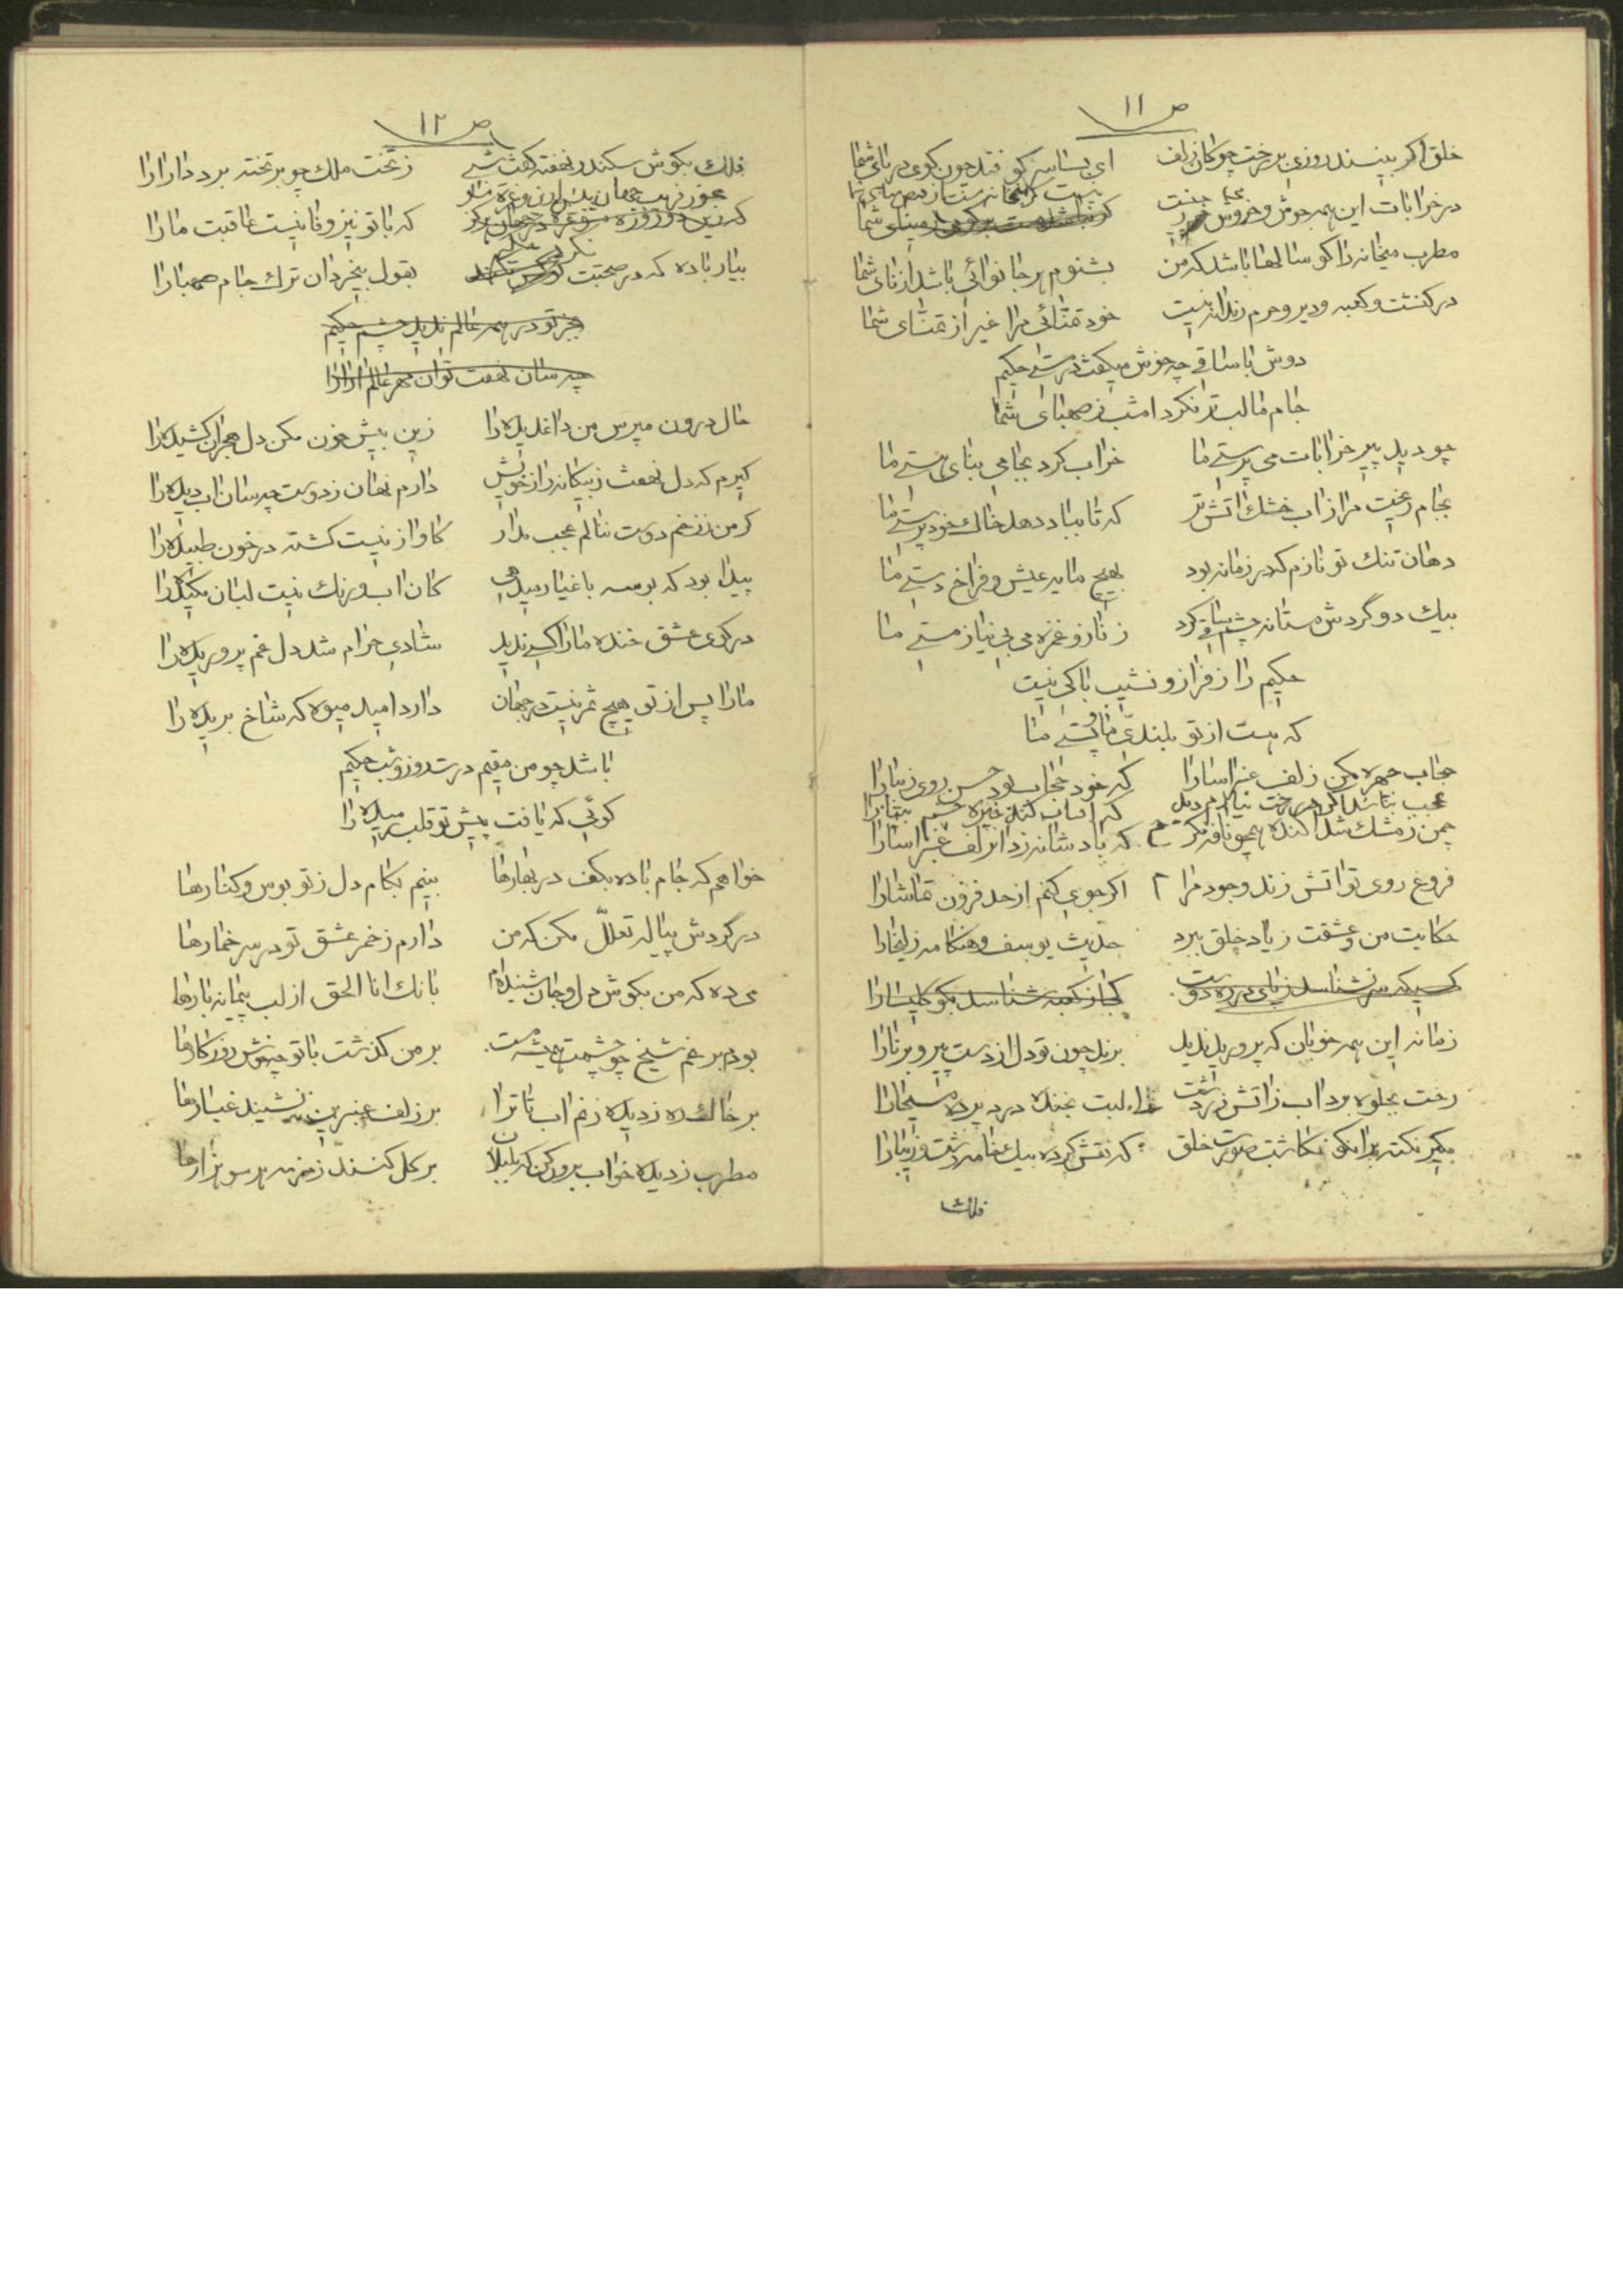 ص ۱۱
خلق اگر بینند روزی بر رخت چوگان زلف ای بسا سر کو فتد چون گوی در پای شما
در خرابات این همه جوش و خروش
مطرب میخانه را گو سالها باشد که من بشنوم هر جا نوائی باشد از نای شما
در کنشت و کعبه و دیر و حرم زندانه نیست خود تمنّائی مرا غیر از تمنّای شما
دوش با ساقی چه خوش میگفت در مستی حکیم
جام ما لب تر نکرد امشب ز صهبای شما
چو دید پیر خرابات می پرستی ما خراب کرد بجامی بنای هستی ما
بجام ریخت مرا ز آب خشک آتش تر که تا بباد دهد خاک خودپرستی ما
دهان تنک تو نازم که در زمانه بود بهیچ مایه عیش و فراخ دستی ما
بیک دو گردش مستانه چشم ساقی کرد ز ناز و غمزه می بی نیاز مستی ما
حکیم را ز فراز و نشیب باکی نیست
که هست از تو بلندّی ما و پستی ما
حجاب چهره مکن زلف عنبراسا را که خود حجاب بود حسن روی زیبا را
عجب نباشد اگر در رخت نیارم دید که آفتاب کند خیره چشم بینا را
چمن ز مشک شد آکنده همچو نافه مگر که باد شانه زد آن زلف عنبراسا را
فروغ روی تو آتش زند وجود مرا ۲ اگر چو می کنم از حد فزون تماشا را
حکایت من و عشقت ز یاد خلق ببرد حدیث یوسف و هنگامه زلیخا را
کسیکه سر نشناسد ز پای در ره دوست کجا ز کعبه شناسد بگو کلیسا را
زمانه این همه خوبان که پرورید ندید برند چون تو دل از دست پیر و برنا را
رخت بجلوه برد آب ز آتش زردشت لبت بخنده درد پرده مسیحا را
مگیر نکته بر آنکو نگاشت صورت خلق که نقش کرده بیک خامه زشت و زیبا را
فلک
ص ۱۲
فلک بگوش سکندر نهفته گفت شبی ز تخت ملک چو بر تخته برد دارا را
که با تو نیز وفا نیست عاقبت ما را
بیار باده که در صحبت بقول بیخردان ترک جام صهبا را
جز تو در همه عالم ندید چشم حکیم
چه سان نهفت توان مهر عالم آرا را
حال درون مپرس من داغدیده را زین بیش خون مکن دل هجران کشیده را
گیرم که دل نهفت ز بیگانه راز خویش دارم نهان ز دوست چه سان آب دیده را
گر من ز زخم دوست ننالم عجب مدار کاواز نیست کشته در خون طپیده را
پیدا بود که بوسه باغیار میدهی کان آب و رنگ نیست لبان مکیده را
در کوی عشق خنده ما را کسی ندید شادی حرام شد دل غم پروریده را
ما را پس از تو هیچ ثمر نیست در جهان دارد امید میوه که شاخ بریده را
باشد چو من مقیم درت روز و شب حکیم
گوئی که یافت پیش تو قلب رمیده را
خواهم که جام باده بکف در بهارها بینم بکام دل ز تو بوس و کنارها
در گردش پیاله تعلّل مکن که من دارم ز خمر عشق تو در سر خمارها
می ده که من بگوش دل و جان شنیده‌ام بانک انا الحق از لب پیمانه بارها
بودم برغم شیخ چو چشمت همیشه مست بر من گذشت با تو چه خوش روزگارها
بر خاک ره ز دیده زنم آب تا ترا بر زلف عنبرین ننشیند غبارها
مطرب ز دیده خواب برون کن که بلبلان بر گل کنند زمزمه هر سو هزارها